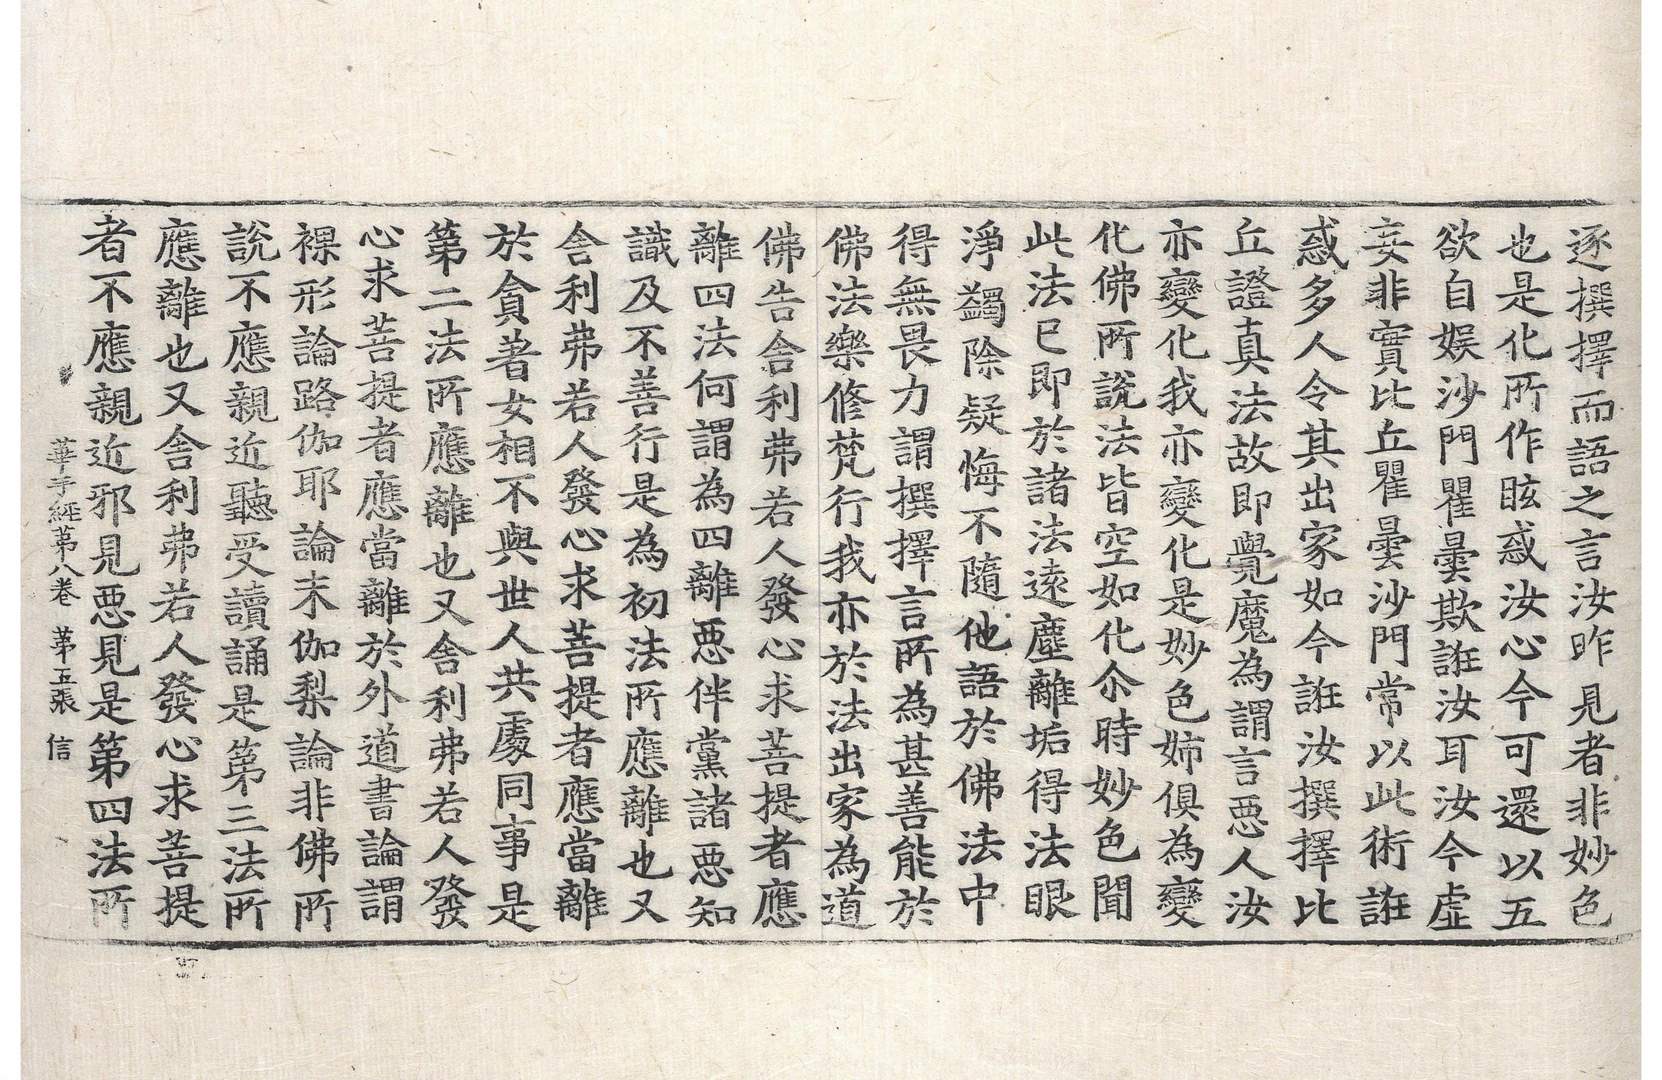 逐撰擇而語之言汝昨見者非妙色
也是化所作眩惑汝心今可還以五
欲自娛沙門瞿曇欺誑汝耳汝今虛
妄非實比丘瞿曇沙門常以此術誑
惑多人令其出家如今誑汝撰擇比
丘證真法故即覺魔為謂言惡人汝
亦變化我亦變化是妙色姉俱為變
化佛所說法皆空如化尒時妙色聞
此法已即於諸法遠塵離垢得法眼
淨蠲除疑悔不隨他語於佛法中
得無畏力謂撰擇言所為甚善能於
佛法樂修梵行我亦於法出家為道
佛告舍利弗若人發心求菩提者應
離四法何謂為四離惡伴黨諸惡知
識及不善行是為初法所應離也又
舍利弗若人發心求菩提者應當離
於貪著女相不與世人共處同事是
第二法所應離也又舍利弗若人發
心求菩提者應當離於外道書論謂
裸形論路伽耶論末伽梨論非佛所
說不應親近聽受讀誦是第三法所
應離也又舍利弗若人發心求菩提
者不應親近邪見惡見是第四法所
華手經第八卷 第五張 信